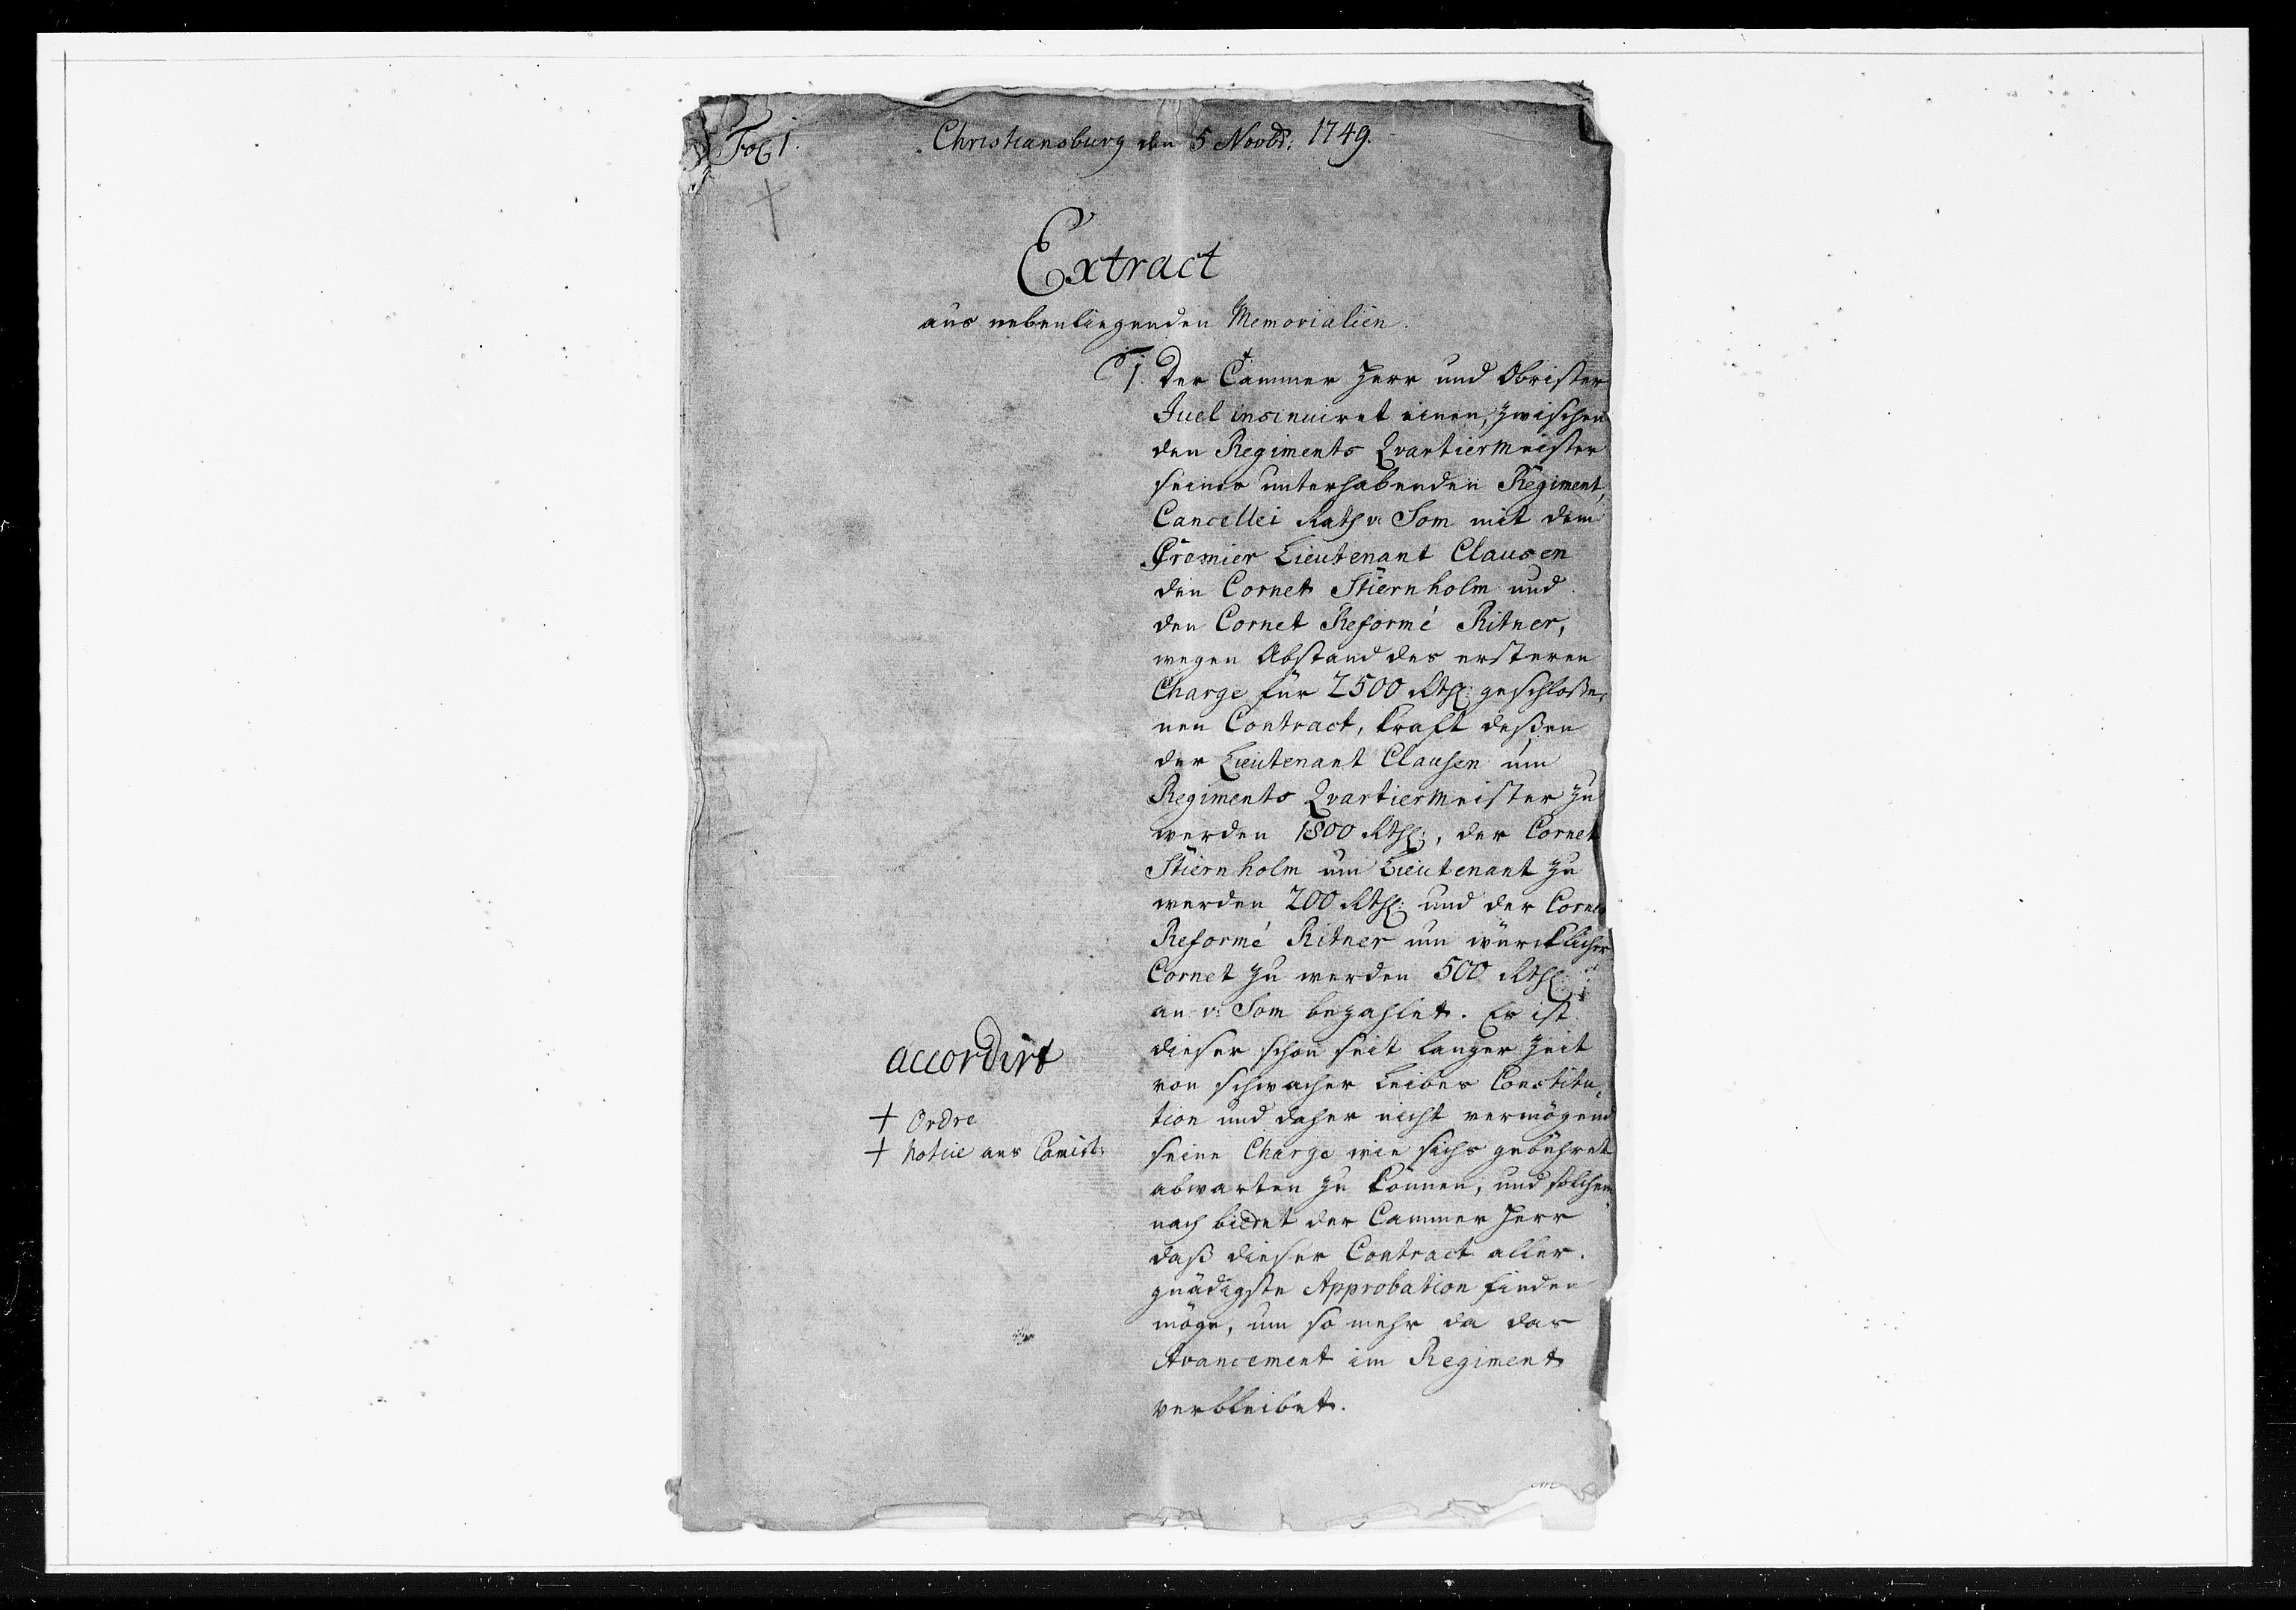 Fol 1.
Christiansburg den 5 Novbr: 1749.
Extract
aus nebenliegenden Memorialien.
1. Der Cammer Herr und Obrister
Juel insinuiret einen, zwischen
den Regiments Qvartiermeister
seines unterhabenden Regiment,
Cancellei Rath v. Som mit dem
Premier Lieutenant Clausen
den Cornet Stiernholm und
den Cornet Reformé Ritner,
wegen Abstand des ersteren
Charge für 2500 Rthl: geschloße,
nen Contract, kraft deßen
der Lieutenant Clausen um
Regiments Qvartiermeister zu
werden 1800 Rthl:, der Cornet
Stiernholm um Lieutenant zu
werden 200 Rthl: und der Cornet
Reformé Ritner um würcklicher
Cornet zu werden 500 Rthl:
an v: Som bezahlet. Es ist
dieser schon seit langer Zeit
von schwacher Leibes Constitu,
tion und daher nicht vermögend
seine Charge wie sichs gebühret
abwarten zu können, und solchem
nach bietet der Cammer Herr
daß dieser Contract aller.
gnädigste Approbation finden
möge, um so mehr da das
Avancement im Regiment
verbleibet.
accordirt
+ Ordre
+ Notice ans Comist: